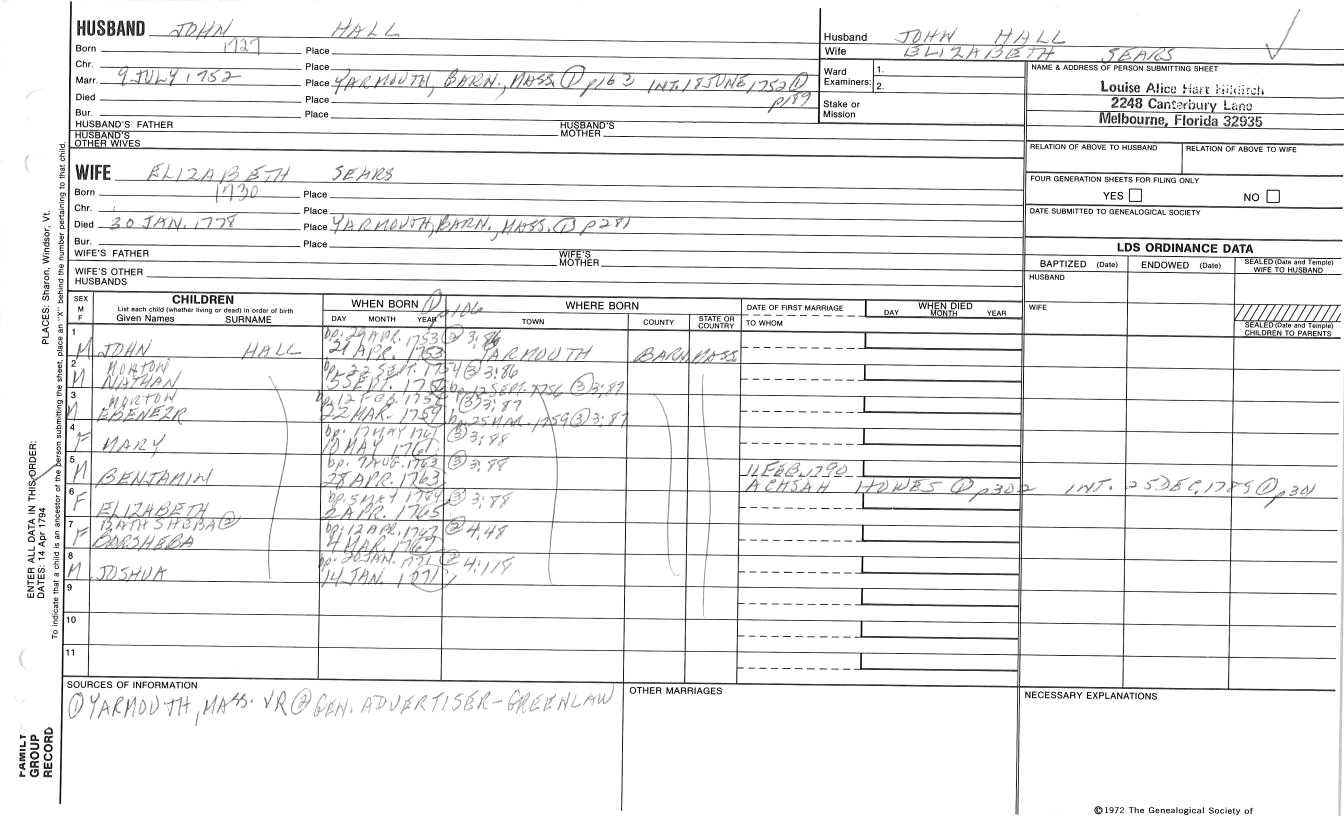 HUSBAND JOHN HALL
Born 1727 Place
Chr. Place
Marr. 9 JULY 1752 Place YARMOUTH, BARN., MASS. ① p163 INT. 18 JUNE 1752 ① p189
Died Place
Bur. Place
HUSBAND'S FATHER HUSBAND'S MOTHER
HUSBAND'S OTHER WIVES
WIFE ELIZABETH SEARS
Born 1730 Place
Chr. Place
Died 30 JAN. 1778 Place YARMOUTH, BARN., MASS. ① p281
Bur. Place
WIFE'S FATHER WIFE'S MOTHER
WIFE'S OTHER HUSBANDS
Husband JOHN HALL
Wife ELIZABETH SEARS
Ward Examiners: 1.
2.
Stake or Mission
NAME & ADDRESS OF PERSON SUBMITTING SHEET
Louise Alice Hart
2248 Canterbury Lane
Melbourne, Florida 32935
RELATION OF ABOVE TO HUSBAND RELATION OF ABOVE TO WIFE
FOUR GENERATION SHEETS FOR FILING ONLY
YES NO
DATE SUBMITTED TO GENEALOGICAL SOCIETY
LDS ORDINANCE DATA
BAPTIZED (Date) ENDOWED (Date) SEALED (Date and Temple) WIFE TO HUSBAND
HUSBAND
WIFE
SEALED (Date and Temple) CHILDREN TO PARENTS
SEX M F
CHILDREN
List each child (whether living or dead) in order of birth
Given Names SURNAME
WHEN BORN ① p106
DAY MONTH YEAR
WHERE BORN
TOWN COUNTY STATE OR COUNTRY
DATE OF FIRST MARRIAGE
TO WHOM
WHEN DIED
DAY MONTH YEAR
1 bp. 29 APR. 1753 ② 3;86
M JOHN HALL 21 APR. 1753 YARMOUTH BARN. MASS.
2 bp. 22 SEPT. 1754 ③ 3;86
M NATHAN 5 SEPT. 1756 bp. 12 SEPT. 1756 ③ 3;87
3 bp. 12 FEB. ③ 3;87
M EBENEZR 22 MAR. 1759 bp. 25 MAR. 1759 ③ 3;87
4 bp. 17 MAY 1761 ③ 3;88
F MARY 10 MAY 1761
5 bp. 7 AUG. 1763 ③ 3;88 11 FEB. 1790
M BENJAMIN 28 APR. 1763 ACHSAH HOWES ① p302 INT. 25 DEC. 1789 ① p301
6 bp. 5 MAY ③ 3;88
F ELIZABETH 2 APR. 1765
7 BATHSHEBA ② bp. 12 APR. ② 4;48
F BARSHEBA 4 MAR. 1767
8 bp. 20 JAN. 1771 ② 4;118
M JOSHUA 14 JAN. 1771
9
10
11
SOURCES OF INFORMATION
① YARMOUTH, MASS. VR ② GEN. ADVERTISER - GREENLAW
OTHER MARRIAGES
NECESSARY EXPLANATIONS
©1972 The Genealogical Society of
PLACES: Sharon, Windsor, Vt.
ENTER ALL DATA IN THIS ORDER:
DATES: 14 Apr 1794
To indicate that a child is an ancestor of the person submitting the sheet, place an "X" behind the number pertaining to that child.
FAMILY GROUP RECORD